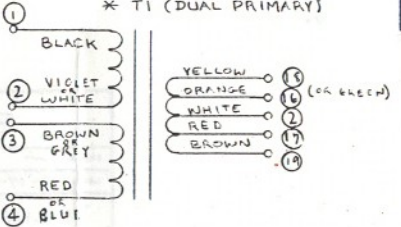 * T1 (DUAL PRIMARY)
1
BLACK
2
VIOLET
OR
WHITE
3
BROWN
OR
GREY
RED
OR
4
BLUE
YELLOW
15
ORANGE
16
(OR GREEN)
WHITE
2
RED
17
BROWN
19